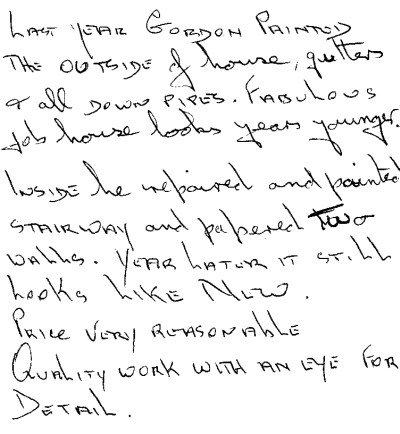 LAST YEAR GORDON PAINTED
THE OUTSIDE of house, gutters
& all DOWN PIPES. FABULOUS
job house looks years younger.
INSIDE he repaired and painted
STAIRWAY and papered TWO
WALLS. YEAR LATER IT STILL
LOOKS LIKE NEW.
PRICE VERY REASONABLE
QUALITY WORK WITH AN EYE FOR
DETAIL.